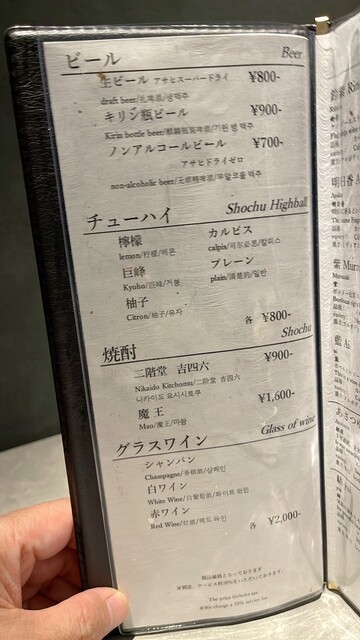 ビール Beer
生ビール アサヒスーパードライ ¥800-
draft beer/扎啤酒/생맥주
キリン瓶ビール ¥900-
Kirin bottle beer/麒麟瓶装啤酒/기린 병 맥주
ノンアルコールビール ¥700-
アサヒドライゼロ
non-alcoholic beer/无酒精啤酒/무알코올 맥주
チューハイ Shochu Highball
檸檬 カルピス
lemon/柠檬/레몬 calpis/可尔必思/칼피스
巨峰 プレーン
Kyoho/巨峰/거봉 plain/清楚的/일반
柚子
Citron/柚子/유자
各 ¥800-
焼酎 Shochu
二階堂 吉四六 ¥900-
Nikaido Kitchomu/二階堂 吉四六
니카이도 요시시로쿠
魔王 ¥1,600-
Mao/魔王/마왕
グラスワイン Glass of wine
シャンパン
Champagne/香槟酒/샴페인
白ワイン
White Wine/白葡萄酒/화이트 와인
赤ワイン
Red Wine/红酒/레드 와인
各 ¥2,000-
税込価格となっております
The price includes tax
We charge a 10% service fee